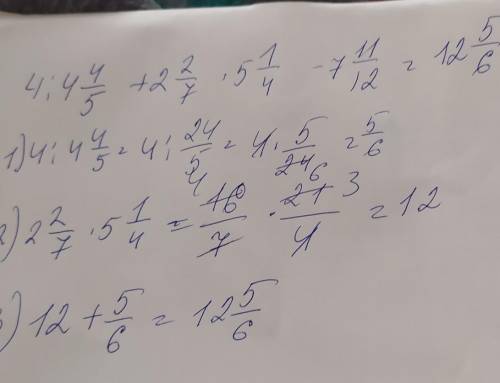 4 : 4 4/5 + 2 2/7 · 5 1/4 - 7 11/12 = 12 5/6
1) 4 : 4 4/5 = 4 : 24/5 = 4 · 5/24 6 = 5/6
2) 2 2/7 · 5 1/4 = 4 16/7 · 21 3/4 = 12
3) 12 + 5/6 = 12 5/6